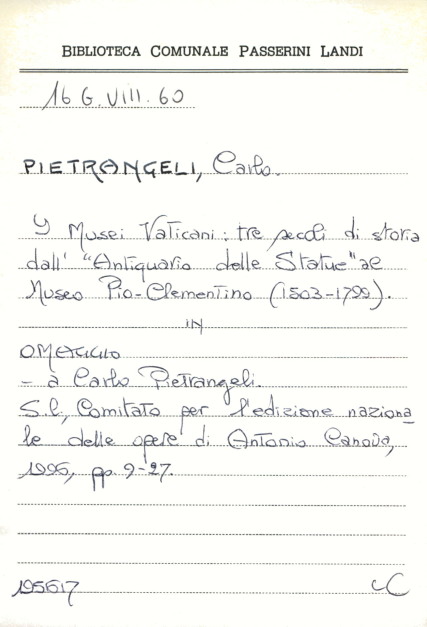 BIBLIOTECA COMUNALE PASSERINI LANDI
16 G. VIII. 60
PIETRANGELI, Carlo.
I Musei Vaticani: tre secoli di storia
dall' "Antiquario delle Statue" al
Museo Pio-Clementino (1503-1799).
IN
OMAGGIO
- a Carlo Pietrangeli.
S.l., Comitato per l'edizione naziona
le delle opere di Antonio Canova,
1996, pp. 9-27.
195617